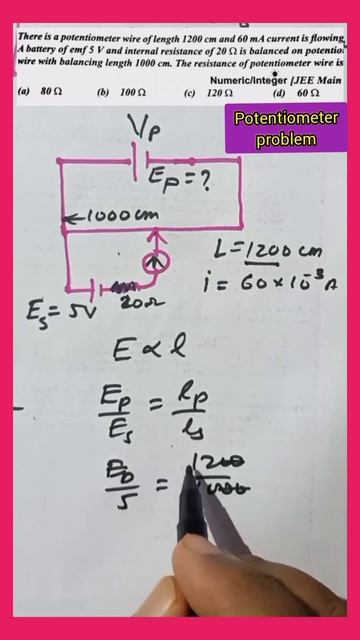 There is a potentiometer wire of length 1200 cm and 60 mA current is flowing
A battery of emf 5 V and internal resistance of 20 Ω is balanced on potentio
wire with balancing length 1000 cm. The resistance of potentiometer wire is
Numeric/Integer [JEE Main
(a) 80 Ω (b) 100 Ω (c) 120 Ω (d) 60 Ω
Potentiometer
problem
Vp
Ep = ?
1000 cm
L = 1200 cm
i = 60 × 10⁻³ A
20Ω
Es = 5V
E ∝ l
Ep/Es = lp/ls
Ep/5 = 1200/1000